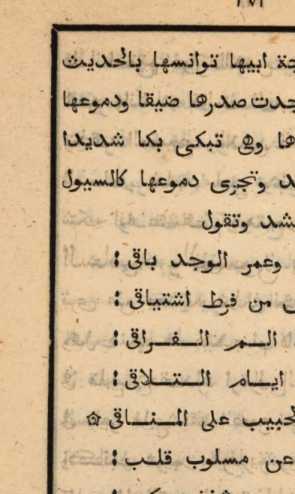 ٢٧١
جة ابيها توانسها بالحديث
جدت صدرها ضيقا ودموعها
ها وهى تبكى بكا شديدا
د وتجرى دموعها كالسيول
شد وتقول
وعمر الوجد باقى :
من فرط اشتياقى :
الـــم الـــفـــراقى :
ايـــام الـــتـــلاقى :
لحبيب على المـــنـــاقى ۞
عن مسلوب قلـــب :